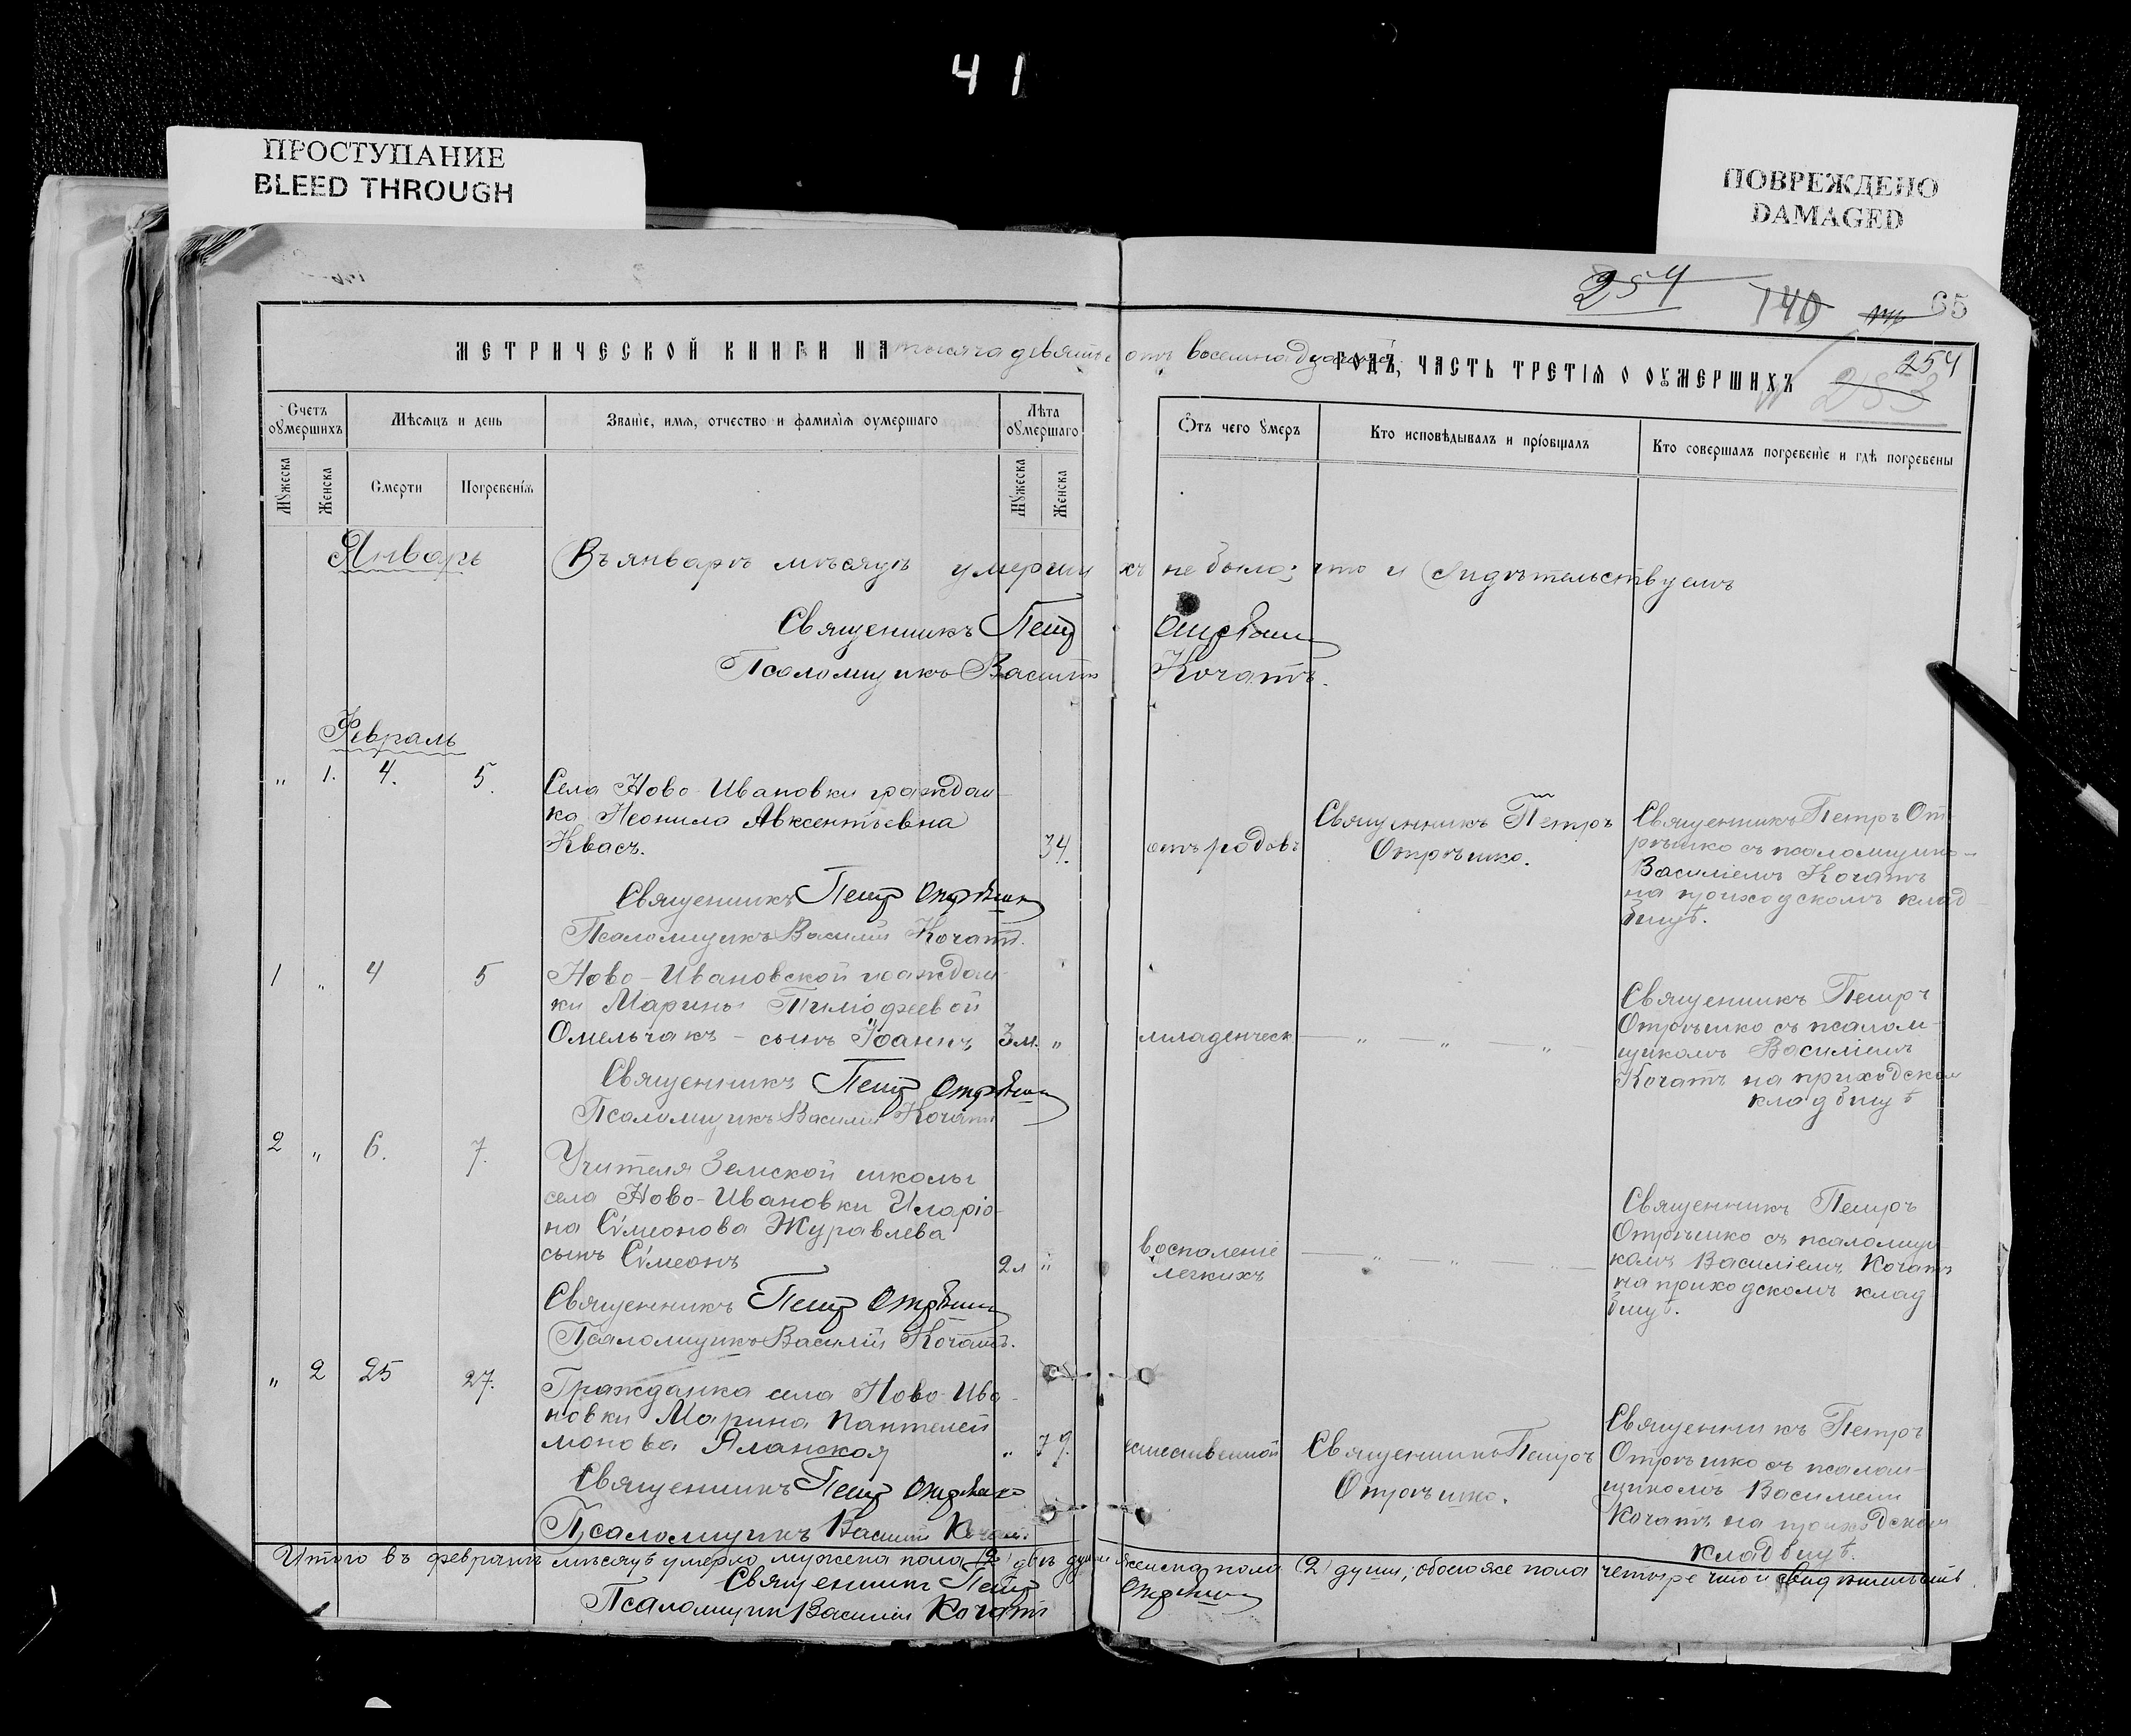 41
ПРОСТУПАНИЕ
BLEED THROUGH
ПОВРЕЖДЕНО
DAMAGED
254
140
65
254
253
МЕТРИЧЕСКОЙ КНИГИ НА тысяча девятьсотъ восемнадцатый ГОДЪ, ЧАСТЬ ТРЕТІЯ О ОУМЕРШИХЪ
Счетъ оумершихъ
Мѣсяцъ и день
Званіе, имя, отчество и фамилія оумершаго
Лѣта оумершаго
Ѿтъ чего умеръ
Кто исповѣдывалъ и пріобщалъ
Кто совершалъ погребеніе и гдѣ погребены
Мужеска
Женска
Смерти
Погребенія
Мужеска
Женска
Январь
Въ январѣ мѣсяцѣ умершихъ не было; что и свидѣтельствуемъ
Священникъ Петръ Отрѣшко
Псаломщикъ Василій Кочатъ.
Февраль
" 1. 4. 5.
Села Ново-Ивановки граждан
ка Неонила Авксентьевна
Квасъ.
34.
отъ родовъ
Священникъ Петръ
Отрѣшко.
Священникъ Петръ От
рѣшко съ псаломщико
Василіемъ Кочатъ
на приходскомъ клад
бищѣ.
Священникъ Петръ Отрѣшко
Псаломщикъ Василій Кочатъ.
1 " 4 5
Ново-Ивановской граждан
ки Марины Тимофеевой
Омельчакъ - сынъ Іоаннъ
3 м. "
младенческ
— " — " — " —
Священникъ Петръ
Отрѣшко съ псалом-
щикомъ Василіемъ
Кочатъ на приходском
кладбищѣ
Священникъ Петръ Отрѣшко
Псаломщикъ Василій Кочатъ
2 " 6. 7.
Учителя Земской школы
села Ново-Ивановки Иларіо
на Сѵмеонова Журавлева
сынъ Сѵмеонъ
2 л "
воспаленіе
легкихъ
— " — " — " —
Священникъ Петръ
Отрѣшко съ псаломщи
комъ Василіемъ Кочатъ
на приходскомъ клад
бищѣ.
Священникъ Петръ Отрѣшко
Псаломщикъ Василій Кочатъ.
" 2 25 27.
Гражданка села Ново-Ива-
новки Марина Пантелей
монова Яланская
" 79.
естественной
Священникъ Петръ
Отрѣшко.
Священникъ Петръ
Отрѣшко съ псалом-
щикомъ Василіем
Кочатъ на приходском
кладбищѣ.
Священникъ Петръ Отрѣшко
Псаломщикъ Василій Кочатъ.
Итого въ февралѣ мѣсяцѣ умерло мужска пола (2) двѣ души женска пола (2) души; обоего же пола четыре что и свидѣтельств
Священникъ Петръ Отрѣшко
Псаломщик Василій Кочатъ